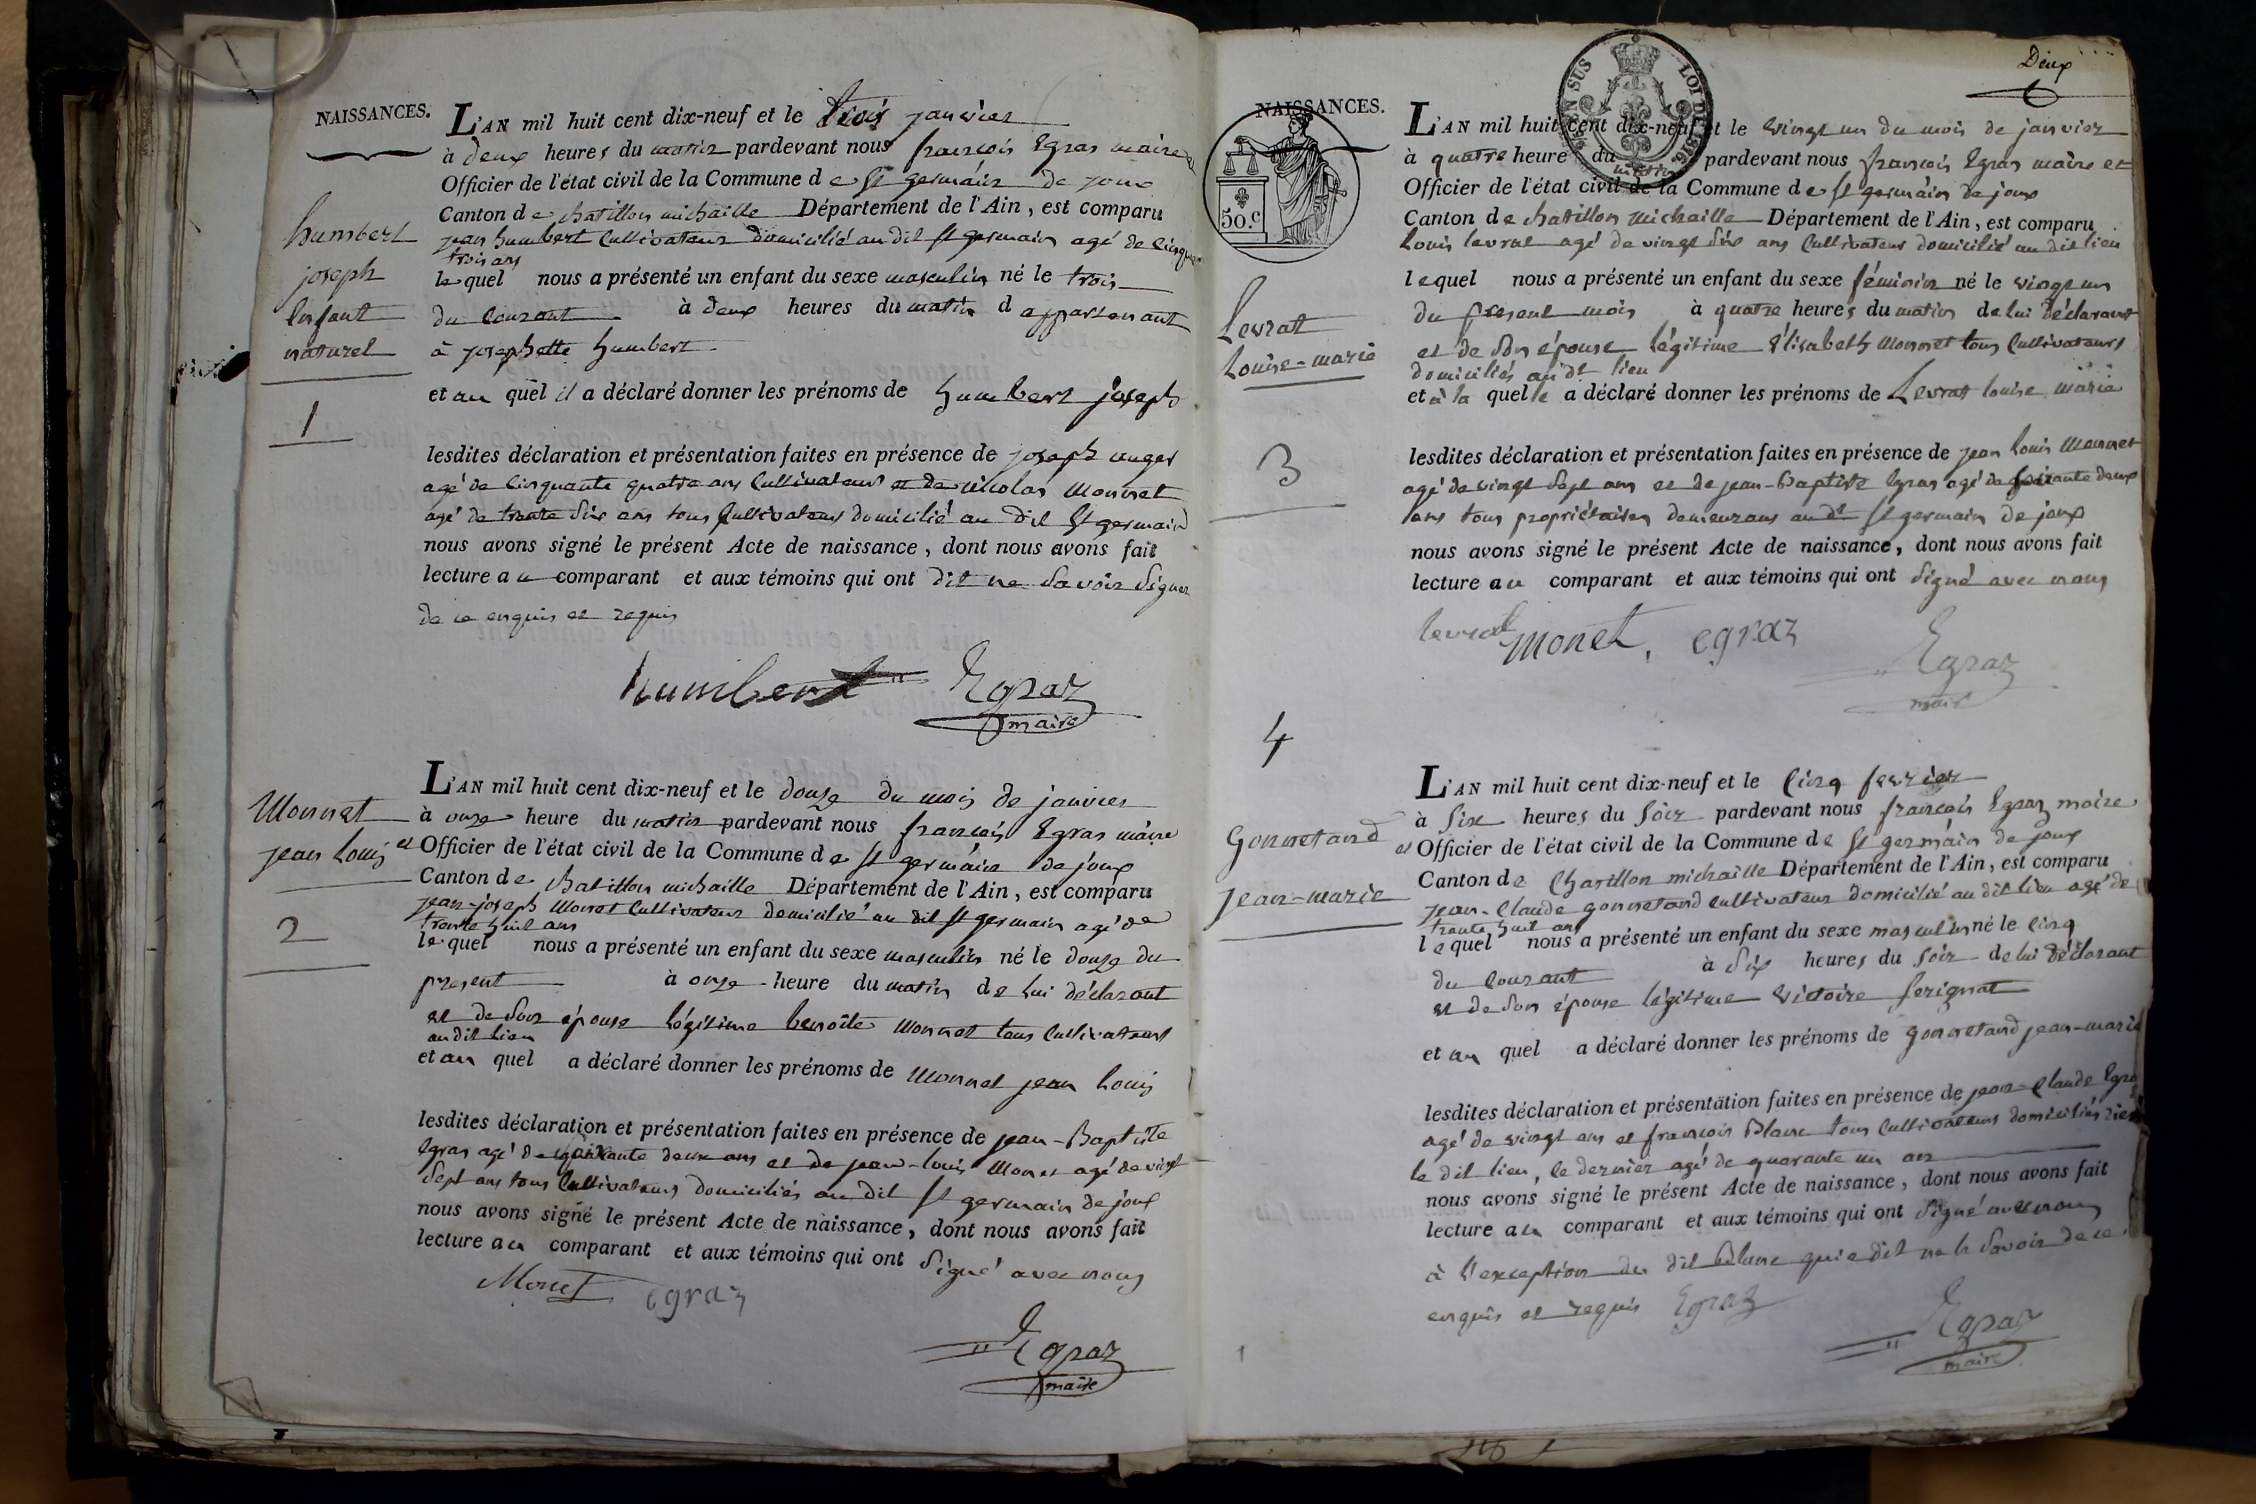 NAISSANCES.
L'AN mil huit cent dix-neuf et le trois janvier
à deux heures du matin pardevant nous françois Egras maire et
Officier de l'état civil de la Commune de St germain de joux
Canton de chatillon michaille Département de l'Ain, est comparu
jean humbert Cultivateur domicilié au dit St germain agé de Cinquante
trois ans
lequel nous a présenté un enfant du sexe masculin né le trois
du Courant à deux heures du matin d appartenant
à josephette humbert
et au quel il a déclaré donner les prénoms de humbert joseph
lesdites déclaration et présentation faites en présence de joseph
agé de Cinquante quatre ans Cultivateur et de nicolas Monnet
agé de trente Six ans tous Cultivateurs domicilié au dit St germain
nous avons signé le présent Acte de naissance, dont nous avons fait
lecture au comparant et aux témoins qui ont dit ne Savoir Signer
de ce enquis et requis
humbert Egraz
maire
humbert
joseph
Enfant
naturel
1
L'AN mil huit cent dix-neuf et le douze du mois de janvier
à onze heure du matin pardevant nous françois Egras maire
et Officier de l'état civil de la Commune de St germain de joux
Canton de chatillon michaille Département de l'Ain, est comparu
jean-joseph Monnet Cultivateur domicilié au dit St germain agé de
trente huit ans
lequel nous a présenté un enfant du sexe masculin né le douze du
present à onze heure du matin de lui déclarant
et de Son épouse légitime benoîte Monnet tous Cultivateurs
au dit lieu
et au quel a déclaré donner les prénoms de Monnet jean Louis
lesdites déclaration et présentation faites en présence de jean-Baptiste
Egras agé de Soixante deux ans et de jean-louis Monet agé de vingt
Sept ans tous Cultivateurs domiciliés au dit St germain de joux
nous avons signé le présent Acte de naissance, dont nous avons fait
lecture au comparant et aux témoins qui ont Signé avec nous
Monet egraz
Egraz
maire
Monnet
jean Louis
2
Deux
SUS
LOI DE 1816
50.c
NAISSANCES.
L'AN mil huit cent dix-neuf et le vingt un du mois de janvier
à quatre heure du matin pardevant nous françois Egras maire et
Officier de l'état civil de la Commune de St germain de joux
Canton de chatillon Michaille Département de l'Ain, est comparu
Louis levrat agé de vingt Six ans Cultivateur domicilié au dit lieu
lequel nous a présenté un enfant du sexe féminin né le vingt un
du present mois à quatre heures du matin de lui déclarant
et de Son épouse légitime Elisabeth Monnet tous Cultivateurs
domiciliés au dt lieu
et à la quelle a déclaré donner les prénoms de Levrat louise marie
lesdites déclaration et présentation faites en présence de jean Louis Monnet
agé de vingt Sept ans et de jean-Baptiste Egras agé de Soixante deux
ans tous propriétaires demeurans au dt St germain de joux
nous avons signé le présent Acte de naissance, dont nous avons fait
lecture au comparant et aux témoins qui ont Signé avec nous
levrat monet, egraz
Egraz
maire
Levrat
Louise-marie
3
4
L'AN mil huit cent dix-neuf et le Cinq fevrier
à Six heures du Soir pardevant nous françois Egraz maire
et Officier de l'état civil de la Commune de St germain de joux
Canton de Chatillon michaille Département de l'Ain, est comparu
jean-Claude gonnetand Cultivateur domicilié au dit lieu agé de
trente huit ans
lequel nous a présenté un enfant du sexe masculin né le Cinq
du Courant à Six heures du Soir de lui déclarant
et de Son épouse légitime Victoire ferignat
et au quel a déclaré donner les prénoms de gonnetand jean-marie
lesdites déclaration et présentation faites en présence de jean-Claude Egra
agé de vingt ans et françois Blanc tous Cultivateurs domiciliés
le dit lieu, le dernier agé de quarante un ans
nous avons signé le présent Acte de naissance, dont nous avons fait
lecture au comparant et aux témoins qui ont Signé avec nous
à l'exception du dit blanc qui a dit ne le Savoir de ce
enquis et requis Egraz
Egraz
maire
Gonnetand
jean-marie